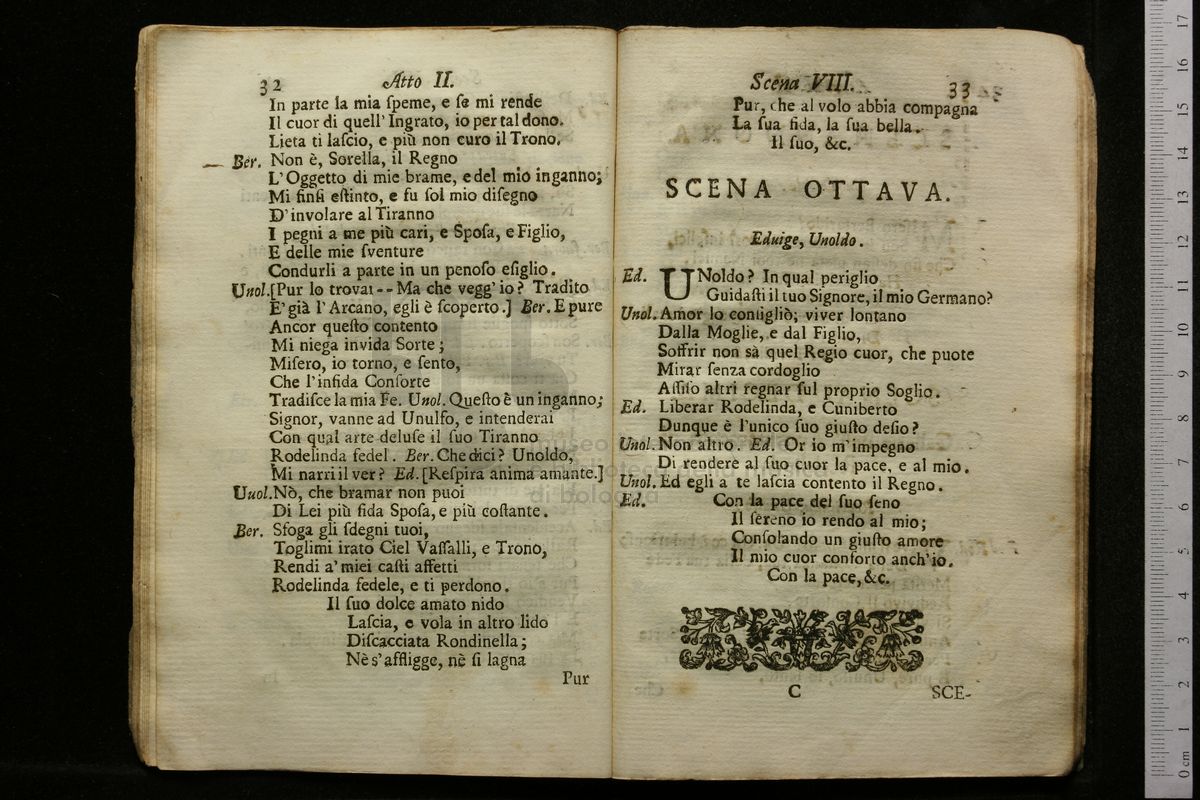 32 Atto II.
In parte la mia ſpeme, e ſe mi rende
Il cuor di quell' Ingrato, io per tal dono.
Lieta ti laſcio, e più non curo il Trono.
Ber. Non è, Sorella, il Regno
L'Oggetto di mie brame, e del mio inganno;
Mi finſi eſtinto, e fu ſol mio diſegno
D'involare al Tiranno
I pegni a me più cari, e Spoſa, e Figlio,
E delle mie ſventure
Condurli a parte in un penoſo eſiglio.
Unol.[Pur lo trovai -- Ma che vegg' io? Tradito
E' già l' Arcano, egli è ſcoperto.] Ber. E pure
Ancor queſto contento
Mi niega invida Sorte;
Miſero, io torno, e ſento,
Che l'infida Conſorte
Tradiſce la mia Fe. Unol. Queſto è un inganno;
Signor, vanne ad Unulfo, e intenderai
Con qual arte deluſe il ſuo Tiranno
Rodelinda fedel. Ber. Che dici? Unoldo,
Mi narri il ver? Ed.[Reſpira anima amante.]
Uuol.Nò, che bramar non puoi
Di Lei più fida Spoſa, e più coſtante.
Ber. Sfoga gli ſdegni tuoi,
Toglimi irato Ciel Vaſſalli, e Trono,
Rendi a' miei caſti affetti
Rodelinda fedele, e ti perdono.
Il ſuo dolce amato nido
Laſcia, e vola in altro lido
Diſcacciata Rondinella;
Nè s'affligge, nè ſi lagna
Pur
Scena VIII. 33
Pur, che al volo abbia compagna
La ſua fida, la ſua bella.
Il ſuo, &c.
SCENA OTTAVA.
Eduige, Unoldo.
Ed. UNoldo? In qual periglio
Guidaſti il tuo Signore, il mio Germano?
Unol. Amor lo conſigliò; viver lontano
Dalla Moglie, e dal Figlio,
Soffrir non sà quel Regio cuor, che puote
Mirar ſenza cordoglio
Aſſiſo altri regnar ſul proprio Soglio.
Ed. Liberar Rodelinda, e Cuniberto
Dunque è l'unico ſuo giuſto deſio?
Unol. Non altro. Ed. Or io m'impegno
Di rendere al ſuo cuor la pace, e al mio.
Unol. Ed egli a te laſcia contento il Regno.
Ed. Con la pace del ſuo ſeno
Il ſereno io rendo al mio;
Conſolando un giuſto amore
Il mio cuor conforto anch'io.
Con la pace, &c.
C SCE-